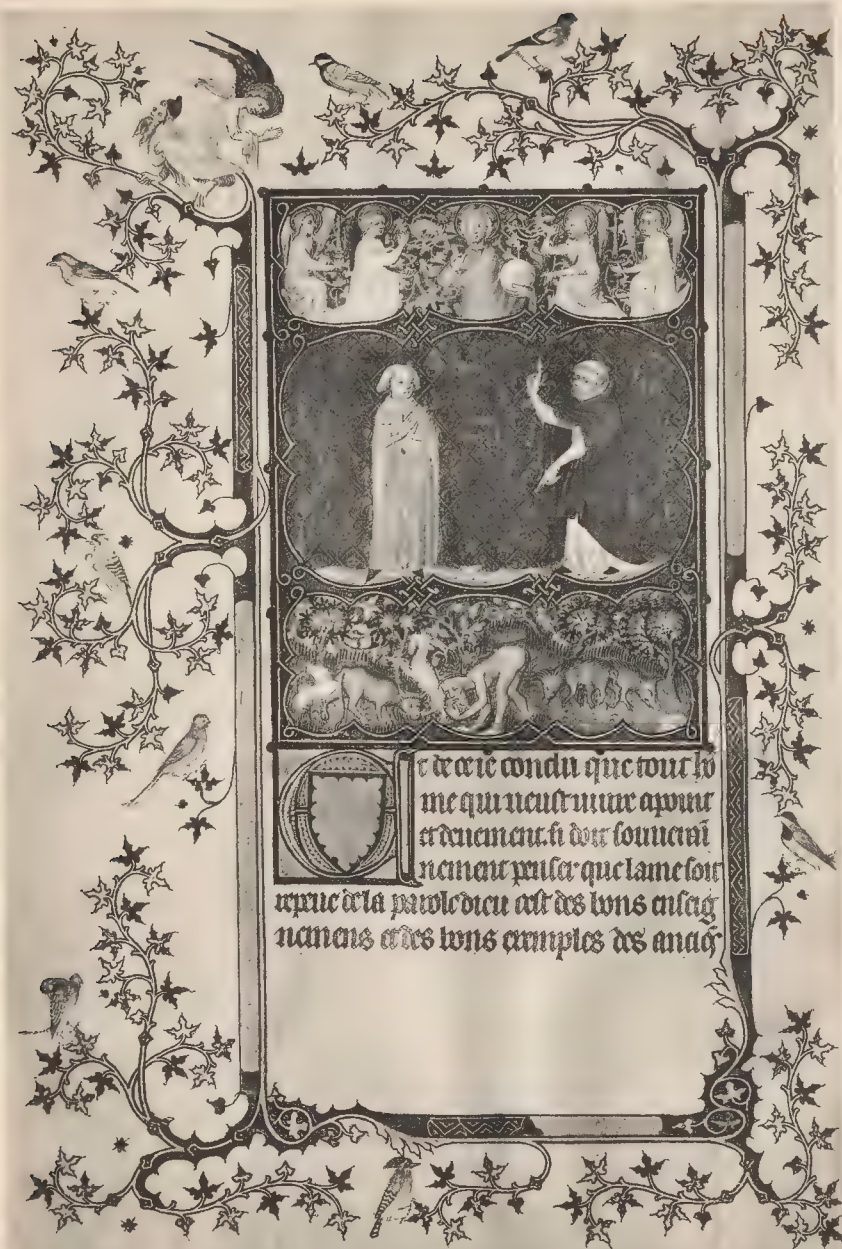 Et de ce ie conclu que tout ho
me qui veust viure a point
et deuement. si doit souuerai
nement penser que lame soit
repeue de la parole dieu cest des bons enseig
nemens et des bons exemples des anciēs